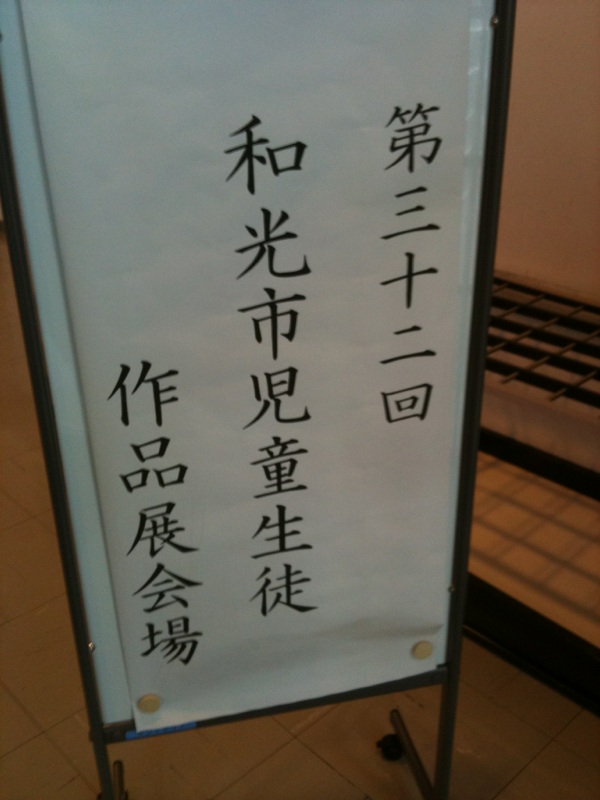 第三十二回
和光市児童生徒
作品展会場